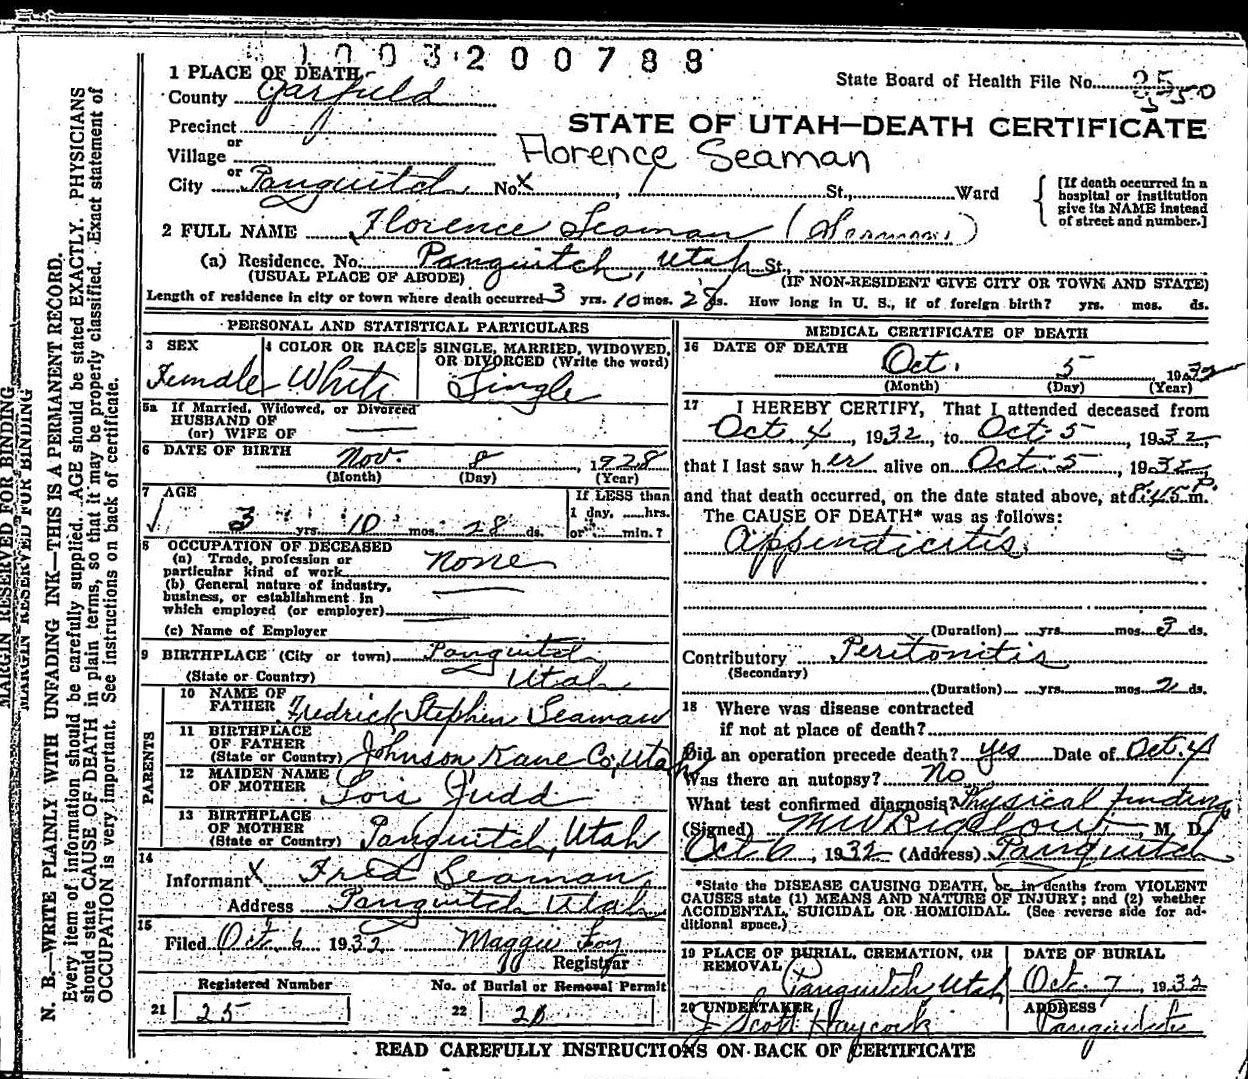 1003200788
1 PLACE OF DEATH
State Board of Health File No. 25
550
County Garfield
STATE OF UTAH—DEATH CERTIFICATE
Precinct
or
Village
Florence Seaman
or
City Panguitch No. X St., Ward
[If death occurred in a
hospital or institution
give its NAME instead
of street and number.]
2 FULL NAME Florence Seaman
(a) Residence. No. Panguitch, Utah St.,
(USUAL PLACE OF ABODE) (IF NON-RESIDENT GIVE CITY OR TOWN AND STATE)
Length of residence in city or town where death occurred 3 yrs. 10 mos. 28 ds. How long in U. S., if of foreign birth? yrs. mos. ds.
PERSONAL AND STATISTICAL PARTICULARS
3 SEX
Female
4 COLOR OR RACE
White
5 SINGLE, MARRIED, WIDOWED,
OR DIVORCED (Write the word)
Single
5a If Married, Widowed, or Divorced
HUSBAND OF
(or) WIFE OF
6 DATE OF BIRTH Nov. 8, 1928
(Month) (Day) (Year)
7 AGE
3 yrs. 10 mos. 28 ds.
If LESS than
1 day, hrs.
or min.?
8 OCCUPATION OF DECEASED
(a) Trade, profession or
particular kind of work None
(b) General nature of industry,
business, or establishment in
which employed (or employer)
(c) Name of Employer
9 BIRTHPLACE (City or town) Panguitch
(State or Country) Utah
PARENTS
10 NAME OF
FATHER Fredrick Stephen Seaman
11 BIRTHPLACE
OF FATHER
(State or Country) Johnson Kane Co, Utah
12 MAIDEN NAME
OF MOTHER Lois Judd
13 BIRTHPLACE
OF MOTHER
(State or Country) Panguitch, Utah
14
Informant X Fred Seaman
Address Panguitch Utah
15
Filed Oct 6 1932 Maggie Foy
Registrar
Registered Number
21 25
No. of Burial or Removal Permit
22
MEDICAL CERTIFICATE OF DEATH
16 DATE OF DEATH
Oct. 5 1932
(Month) (Day) (Year)
17 I HEREBY CERTIFY, That I attended deceased from
Oct. 4, 1932, to Oct. 5, 1932,
that I last saw her alive on Oct. 5, 1932,
and that death occurred, on the date stated above, at 8:45 P m.
The CAUSE OF DEATH* was as follows:
Appendicitis
(Duration) yrs. mos. 3 ds.
Contributory Peritonitis
(Secondary)
(Duration) yrs. mos. 2 ds.
18 Where was disease contracted
if not at place of death?
Did an operation precede death? yes Date of Oct. 4
Was there an autopsy? No
What test confirmed diagnosis? Physical finding
(Signed) M W Bigelow, M. D.
Oct 6, 1932 (Address) Panguitch
*State the DISEASE CAUSING DEATH, or, in deaths from VIOLENT
CAUSES state (1) MEANS AND NATURE OF INJURY; and (2) whether
ACCIDENTAL, SUICIDAL OR HOMICIDAL. (See reverse side for ad-
ditional space.)
19 PLACE OF BURIAL, CREMATION, OR
REMOVAL
Panguitch Utah
DATE OF BURIAL
Oct. 7, 1932
20 UNDERTAKER
J Scott Haycock
ADDRESS
Panguitch
READ CAREFULLY INSTRUCTIONS ON BACK OF CERTIFICATE
MARGIN RESERVED FOR BINDING
MARGIN RESERVED FOR BINDING
N. B.—WRITE PLAINLY WITH UNFADING INK—THIS IS A PERMANENT RECORD.
Every item of information should be carefully supplied. AGE should be stated EXACTLY. PHYSICIANS
should state CAUSE OF DEATH in plain terms, so that it may be properly classified. Exact statement of
OCCUPATION is very important. See instructions on back of certificate.